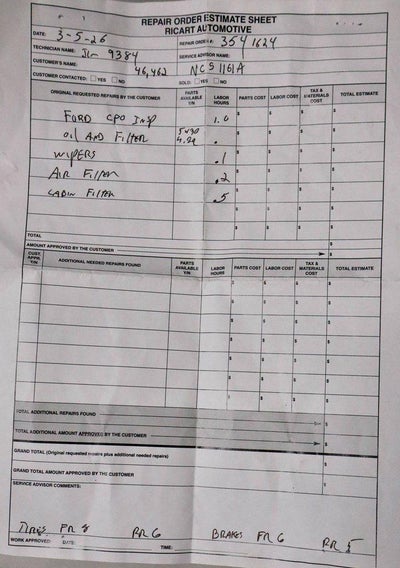 REPAIR ORDER ESTIMATE SHEET
RICART AUTOMOTIVE
DATE: 3-5-26
REPAIR ORDER #: 354 1624
TECHNICIAN NAME: Jim 9384
SERVICE ADVISOR NAME:
CUSTOMER'S NAME: 46,462 NCS 1161A
CUSTOMER CONTACTED: YES NO
SOLD: YES NO
ORIGINAL REQUESTED REPAIRS BY THE CUSTOMER PARTS AVAILABLE Y/N LABOR HOURS PARTS COST LABOR COST TAX & MATERIALS COST TOTAL ESTIMATE
FORD CPO INSP 1.0 $ $ $ $
OIL AND FILTER 5W30 . $ $ $ $
WIPERS .1 $ $ $ $
AIR FILTER .2 $ $ $ $
CABIN FILTER .5 $ $ $ $
$ $ $ $
$ $ $ $
TOTAL $
AMOUNT APPROVED BY THE CUSTOMER $
CUST. APPR. Y/N ADDITIONAL NEEDED REPAIRS FOUND PARTS AVAILABLE Y/N LABOR HOURS PARTS COST LABOR COST TAX & MATERIALS COST TOTAL ESTIMATE
$ $ $ $
$ $ $ $
$ $ $ $
$ $ $ $
$ $ $ $
$ $ $ $
$ $ $ $
TOTAL ADDITIONAL REPAIRS FOUND $
TOTAL ADDITIONAL AMOUNT APPROVED BY THE CUSTOMER $
GRAND TOTAL (Original requested repairs plus additional needed repairs) $
GRAND TOTAL AMOUNT APPROVED BY THE CUSTOMER $
SERVICE ADVISOR COMMENTS:
TIRES FR 8 RR 6 BRAKES FR 6 RR 5
WORK APPROVED: DATE: TIME: